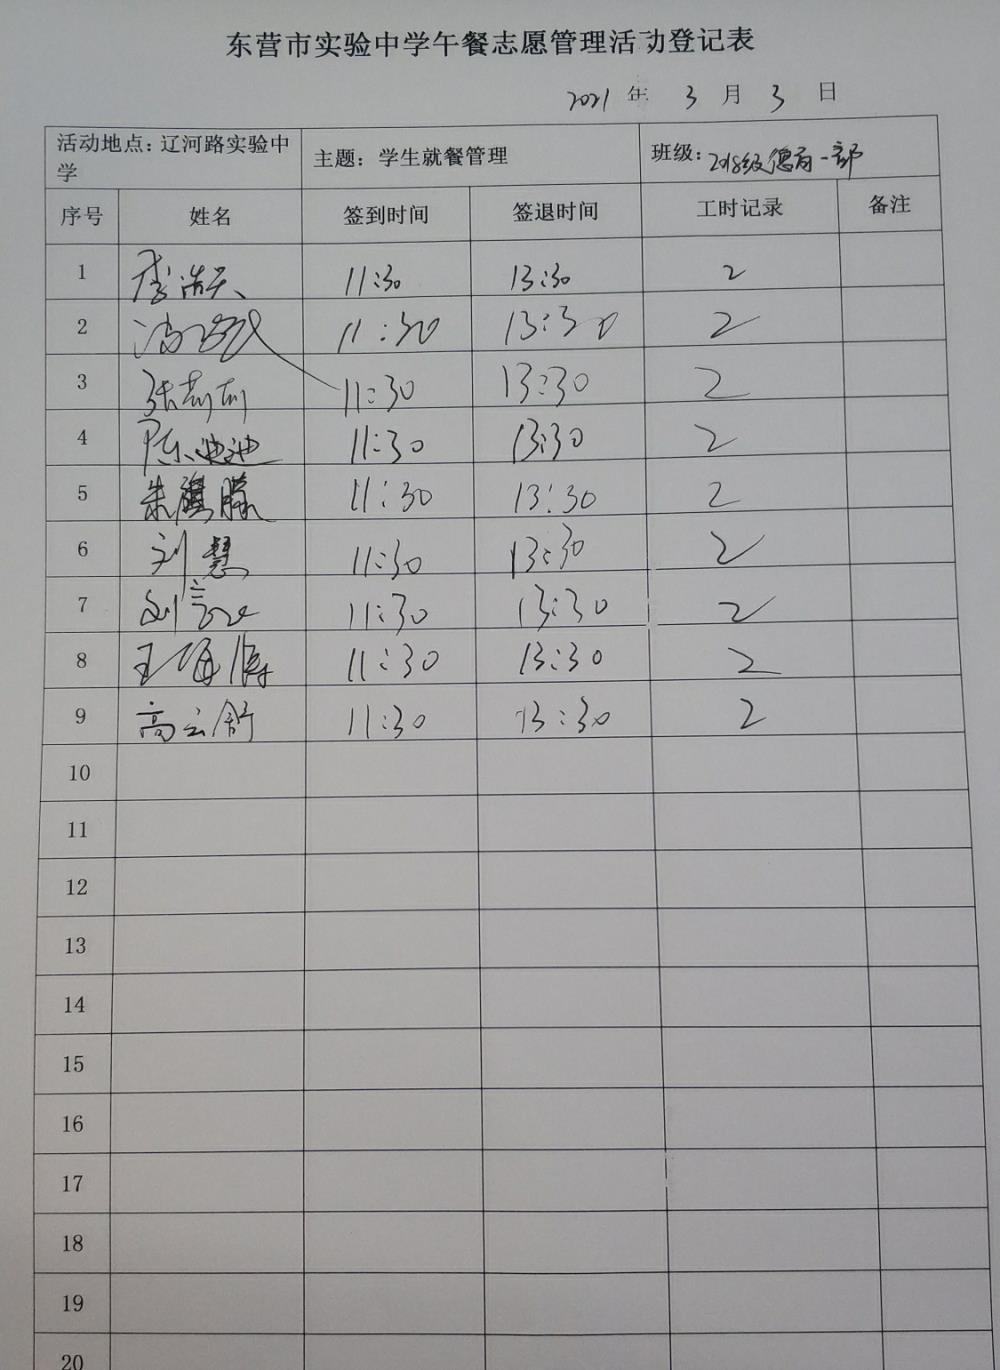 东营市实验中学午餐志愿管理活动登记表
2021 年 3 月 3 日
活动地点：辽河路实验中学 主题：学生就餐管理 班级：2018级德育一部
序号 姓名 签到时间 签退时间 工时记录 备注
1 李浩天 11:30 13:30 2
2 11:30 13:30 2
3 张莉莉 11:30 13:30 2
4 陈迪迪 11:30 13:30 2
5 朱腾 11:30 13:30 2
6 刘慧 11:30 13:30 2
7 刘 11:30 13:30 2
8 王 11:30 13:30 2
9 高云舒 11:30 13:30 2
10
11
12
13
14
15
16
17
18
19
20